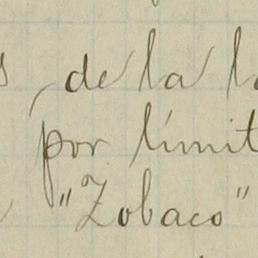 de la
por límit
"Zobaco"